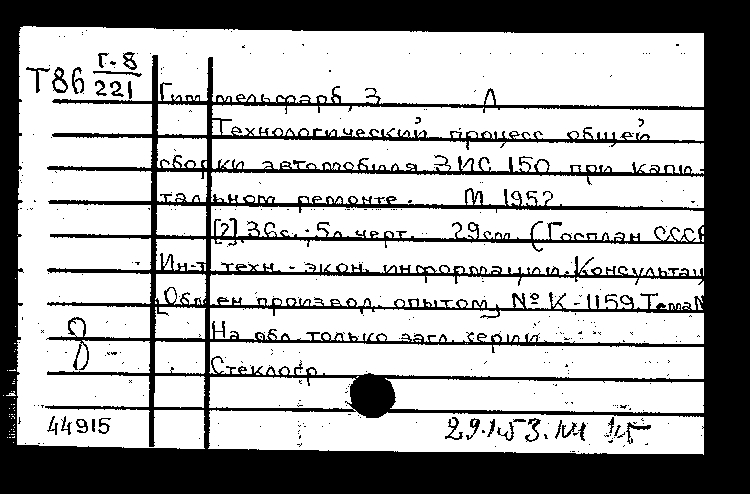 Т86 Г-8
221
Гиммельфарб, З Л
Технологический процесс общей
сборки автомобиля ЗИС 150 при капи-
тальном ремонте. М 1952.
[2], 36с.; 5л черт. 29см. (Госплан СССР
Ин-т техн.-экон. информации. Консультац
[Обмен производ. опытом], № К-1159. Тема №
На обл. только загл. серии.
Стеклогр.
8
44915
29.1.53.